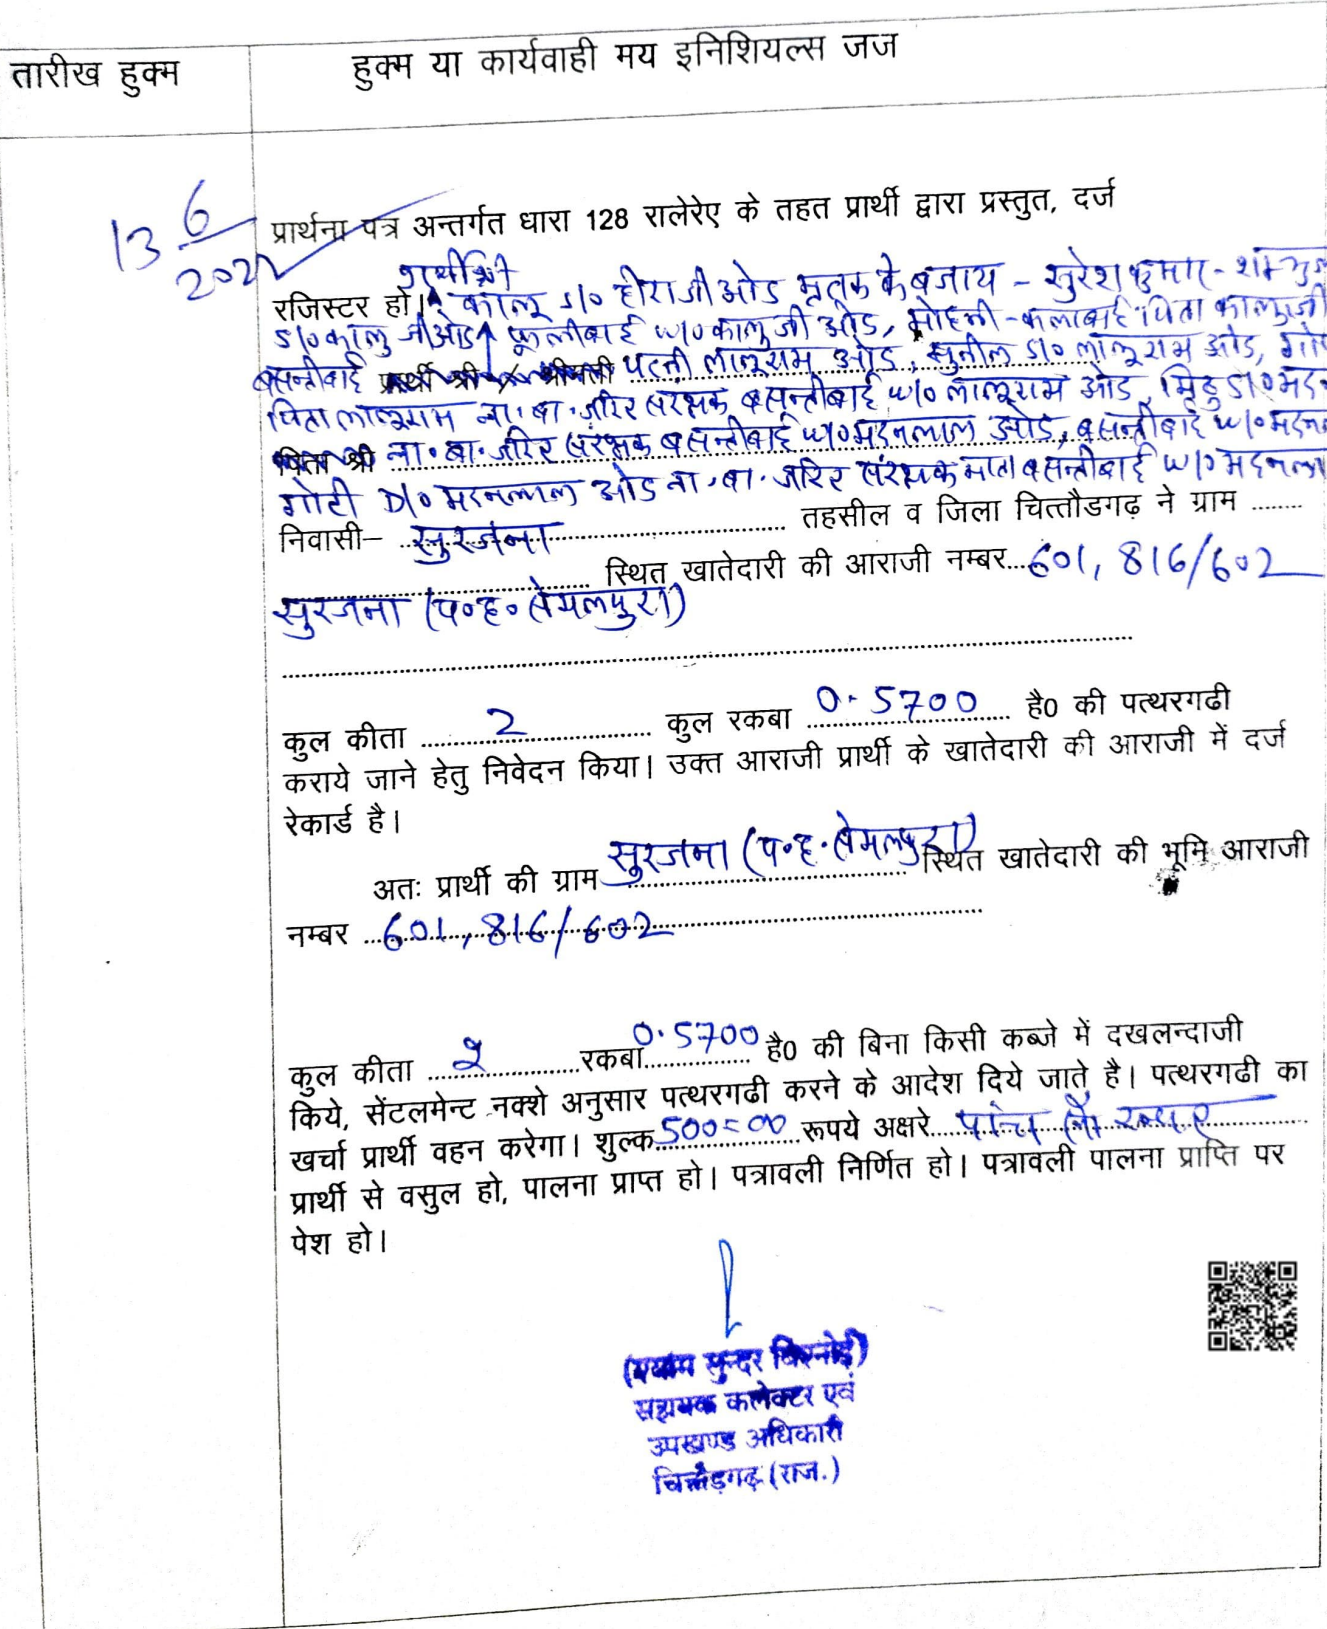 तारीख हुक्म
हुक्म या कार्यवाही मय इनिशियल्स जज
13 6
2022
प्रार्थना पत्र अन्तर्गत धारा 128 रालेरेए के तहत प्रार्थी द्वारा प्रस्तुत, दर्ज
प्रार्थी श्री
रजिस्टर हो। कालू S/o हीराजी ओड मृतक के बजाय - सुरेश कुमार -
S/o कालु जी ओड, फूलीबाई W/o कालु जी ओड, मोहनी - कलाबाई पिता कालुजी
बसन्तीबाई प्रार्थी श्री श्रीमती पत्नी लालूराम ओड, सुनील S/o लालूराम ओड,
पिता लालूराम ना.बा. जरिए संरक्षक बसन्तीबाई W/o लालूराम ओड, S/o
पिता श्री ना.बा. जरिए संरक्षक बसन्तीबाई W/o मदनलाल ओड, बसन्तीबाई W/o
D/o मदनलाल ओड ना.बा. जरिए संरक्षक माता बसन्तीबाई W/o
निवासी– सुरजना तहसील व जिला चित्तौडगढ़ ने ग्राम ........
स्थित खातेदारी की आराजी नम्बर...601, 816/602
सुरजना (प०ह० सेमलपुरा)
कुल कीता 2 कुल रकबा 0.5700 है0 की पत्थरगढी
कराये जाने हेतु निवेदन किया। उक्त आराजी प्रार्थी के खातेदारी की आराजी में दर्ज
रेकार्ड है।
अतः प्रार्थी की ग्राम सुरजना (प.ह. सेमलपुरा) स्थित खातेदारी की भूमि आराजी
नम्बर ...601, 816/602
कुल कीता 2 रकबा 0.5700 है0 की बिना किसी कब्जे में दखलन्दाजी
किये, सेंटलमेन्ट नक्शे अनुसार पत्थरगढी करने के आदेश दिये जाते है। पत्थरगढी का
खर्चा प्रार्थी वहन करेगा। शुल्क 500=00 रूपये अक्षरे पांच सौ रूपए
प्रार्थी से वसुल हो, पालना प्राप्त हो। पत्रावली निर्णित हो। पत्रावली पालना प्राप्ति पर
पेश हो।
(श्याम सुन्दर विश्नोई)
सहायक कलेक्टर एवं
उपखण्ड अधिकारी
चित्तौड़गढ़ (राज.)